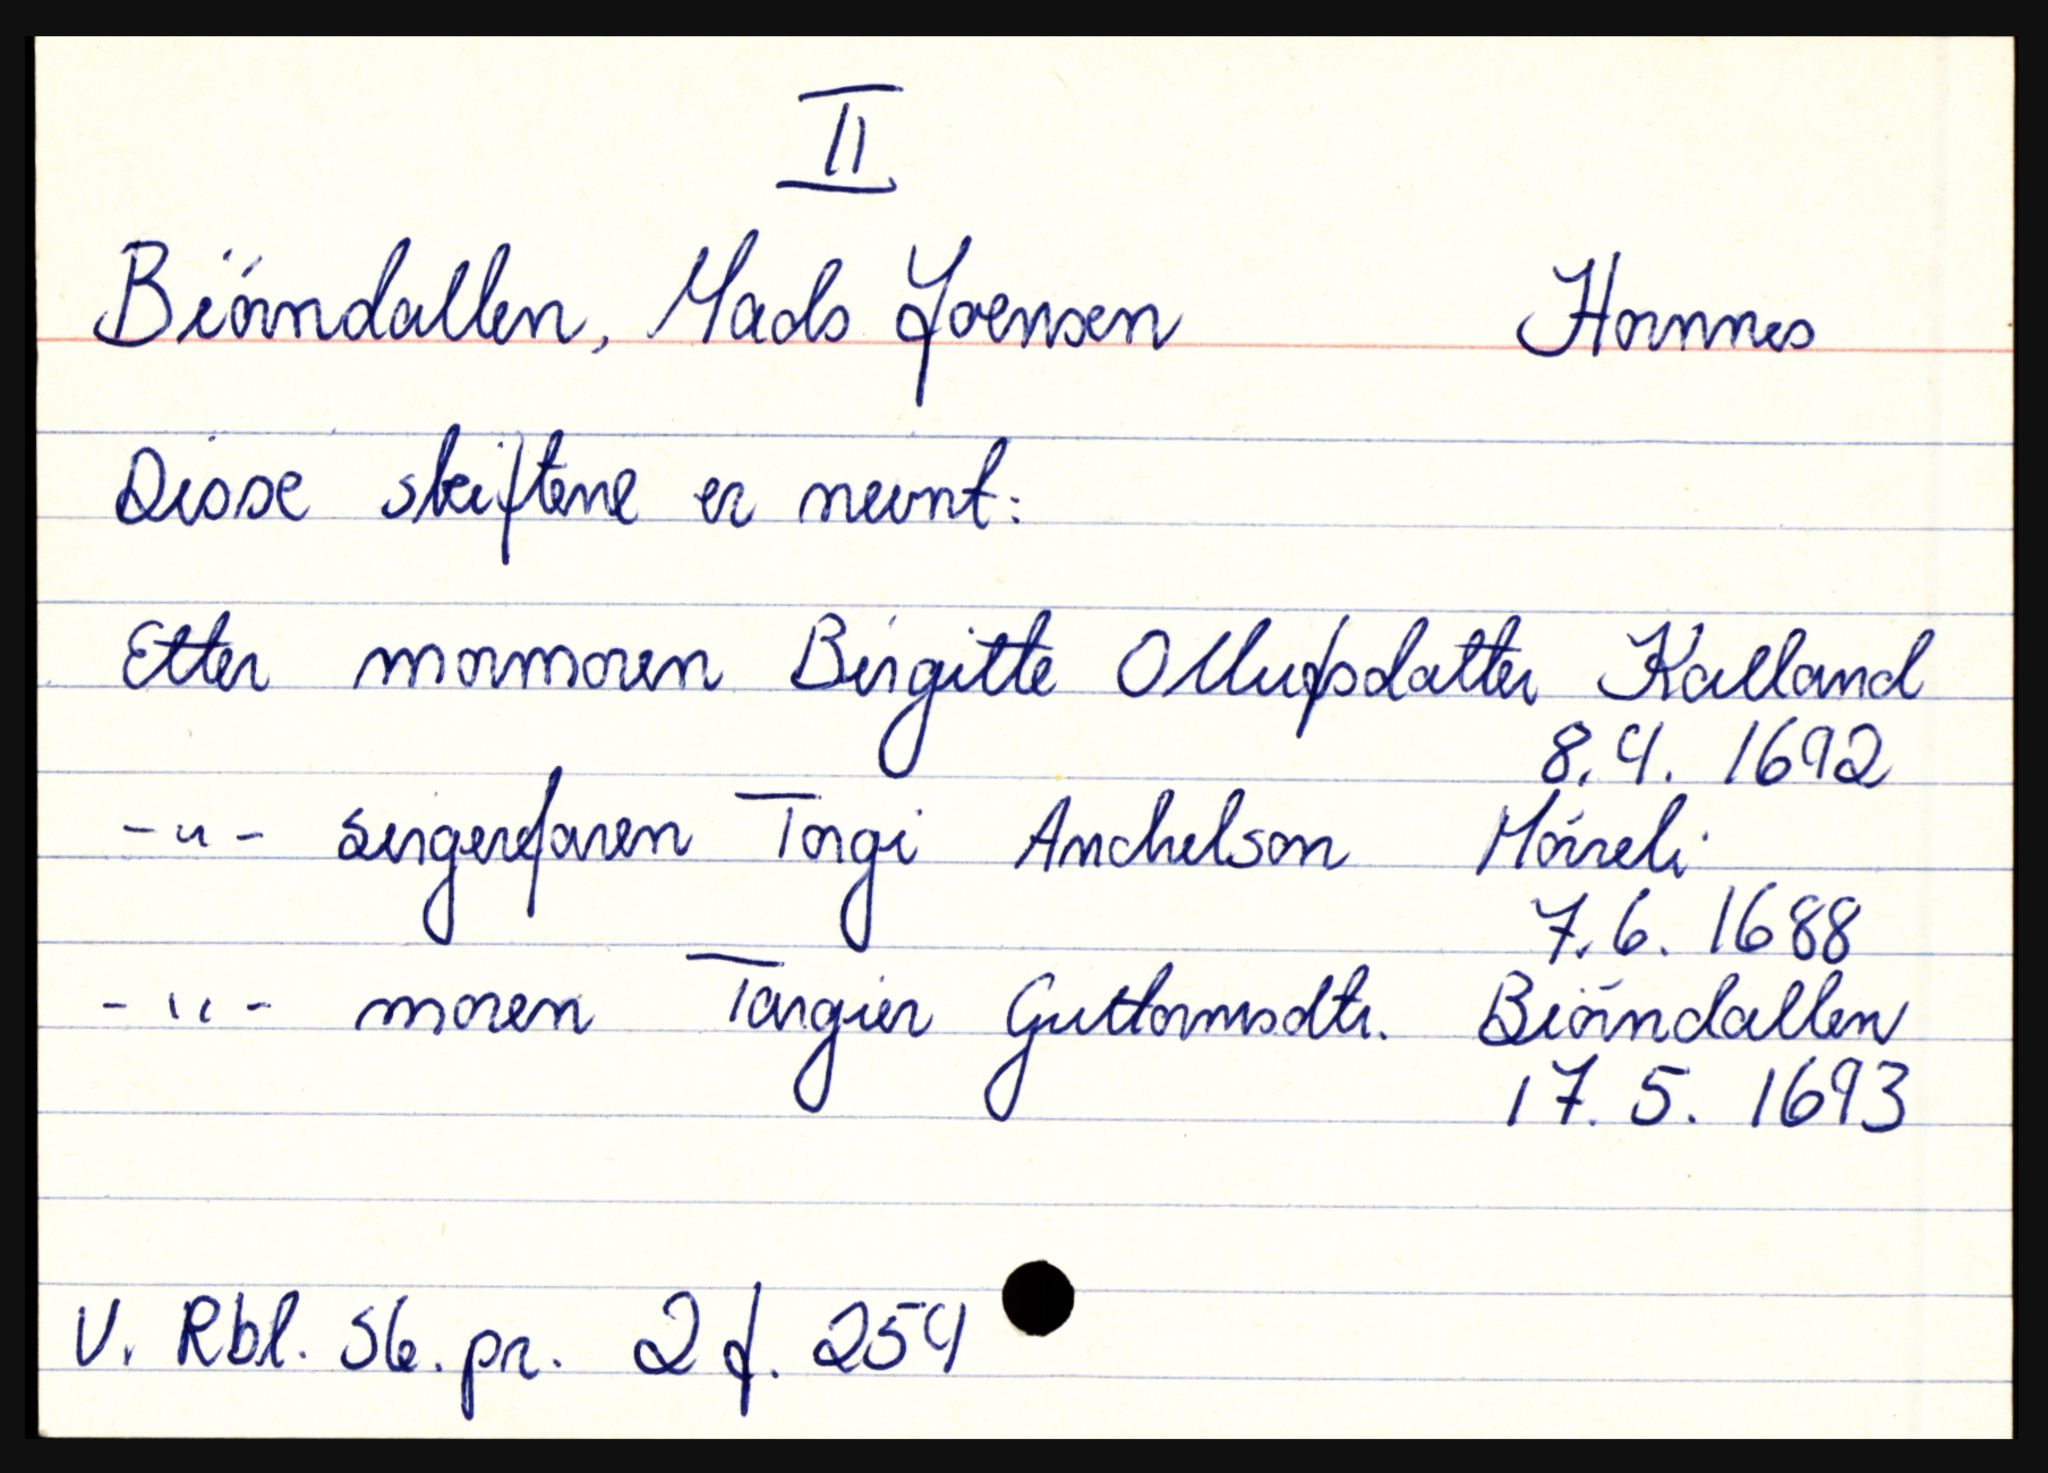 II
Biörndallen, Mads Joensen Hornnes
Disse skiftene er nevnt:
Etter mormoren Birgitte Ollufsdatter Kalland
8.4. 1692
-"- svigerfaren Torgi Anchelson Mörreli
7.6. 1688
-"- moren Targier Guttormsdtr. Biörndallen
17.5. 1693
V. Rbl. Sk. pr. 2 f. 254